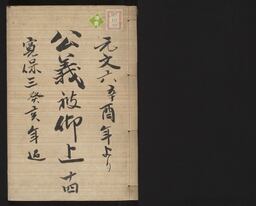 元文六辛酉年より
公義被仰上 十四
寛保三癸亥年迄